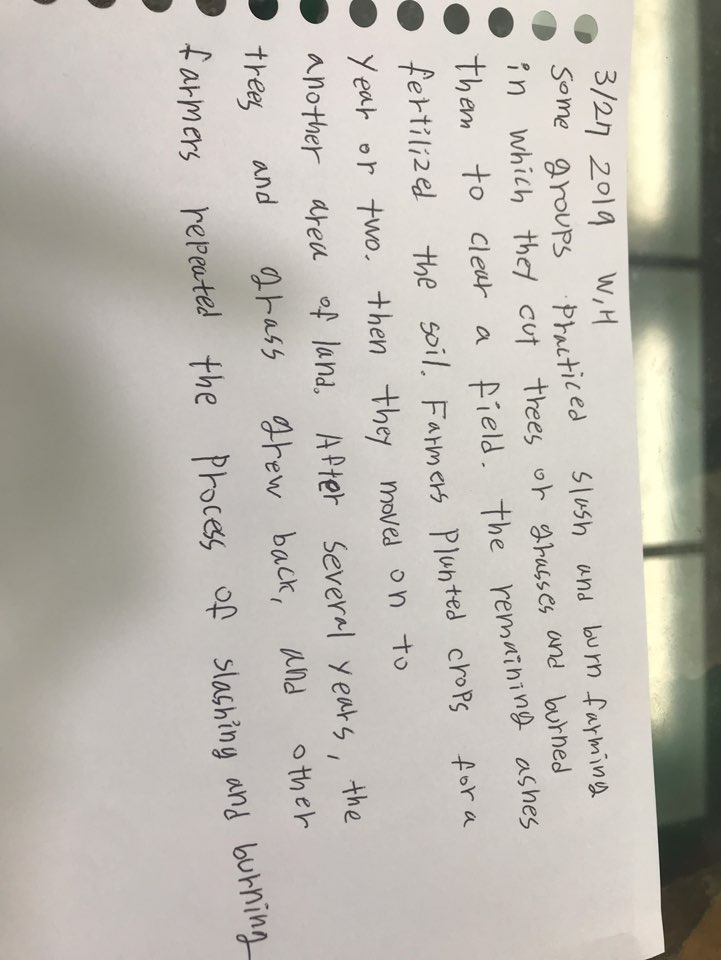 3/27 2019 W,H
some groups practiced slash and burn farming
in which they cut trees or grasses and burned
them to clear a field. the remaining ashes
fertilized the soil. Farmers planted crops for a
year or two. then they moved on to
another area of land. After several years, the
trees and grass grew back, and other
farmers repeated the process of slashing and burning